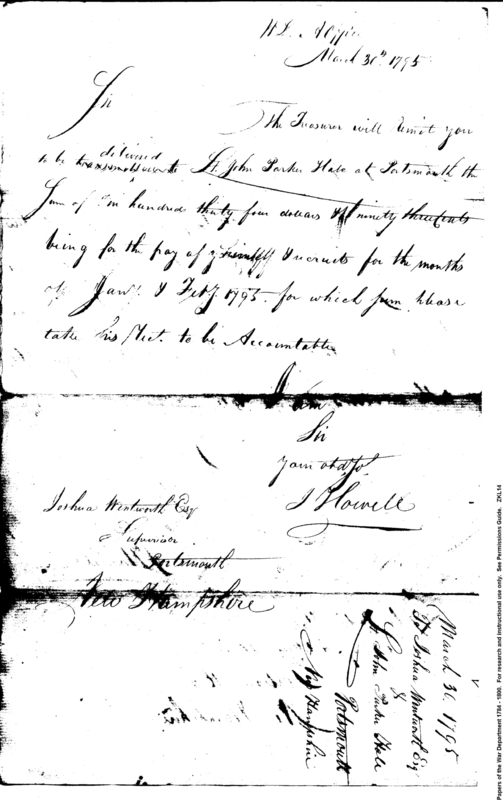 March 30th 1795
Sir
The Treasurer will remit you
delivered
to be to Lt. John Parker Hale at Portsmouth th
Sum of hundred thirty four dollars & ninety three Cents
being for the pay of himself & recruits for the months
of Jany. & Feby. 1795. for which sum please
take his Rect. to be Accountable
I am
Sir
J Howell
Joshua Wentworth Esq
Supervisor
Portsmouth
New Hampshire
March 30. 1795
To Joshua Wentworth Esq
&
Lt. John Parker Hale
Portsmouth
New Hampshire
Papers of the War Department 1784 - 1800. For research and instructional use only. See Permissions Guide. ZKL14